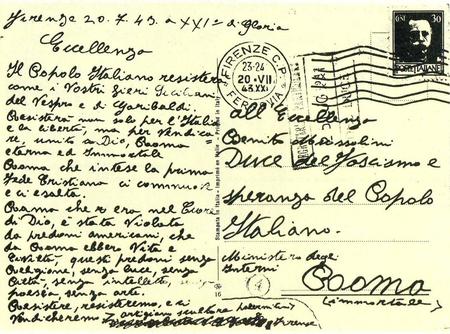 Firenze 20.7.43. a XXI° di gloria
Eccellenza
Il Popolo Italiano resisterà
come i Vostri fieri Siciliani
del Vespro e di Garibaldi.
Resisterà non solo per l'Italia
e la libertà, ma per vendica
re, unito a Dio, Roma
eterna ed Immortale
Roma che intese la prima
Fede Cristiana ci commuove
e ci esalta.
Roma che era nel Cuore
di Dio, è stata Violata
da predoni americani, che
da Roma ebbero Vita e
Civiltà, questi predoni senza
Religione, senza luce, senza
Città, senza intelletto, senza
poesia senza arte.
Resistere, resisteremo, e ci
Vendicheremo
artigiano scultore palermitano
Firenze
FIRENZE C.P.
23-24
20·VII
43 XXI
FERROVIA
CENT 30
POSTE ITALIANE
Stampata in Italia - Imprimé en Italie
16
all'Eccellenza
Benito Mussolini
Duce del Fascismo e
speranza del Popolo
Italiano.
Ministero degli
Interni
Roma
(immortale)